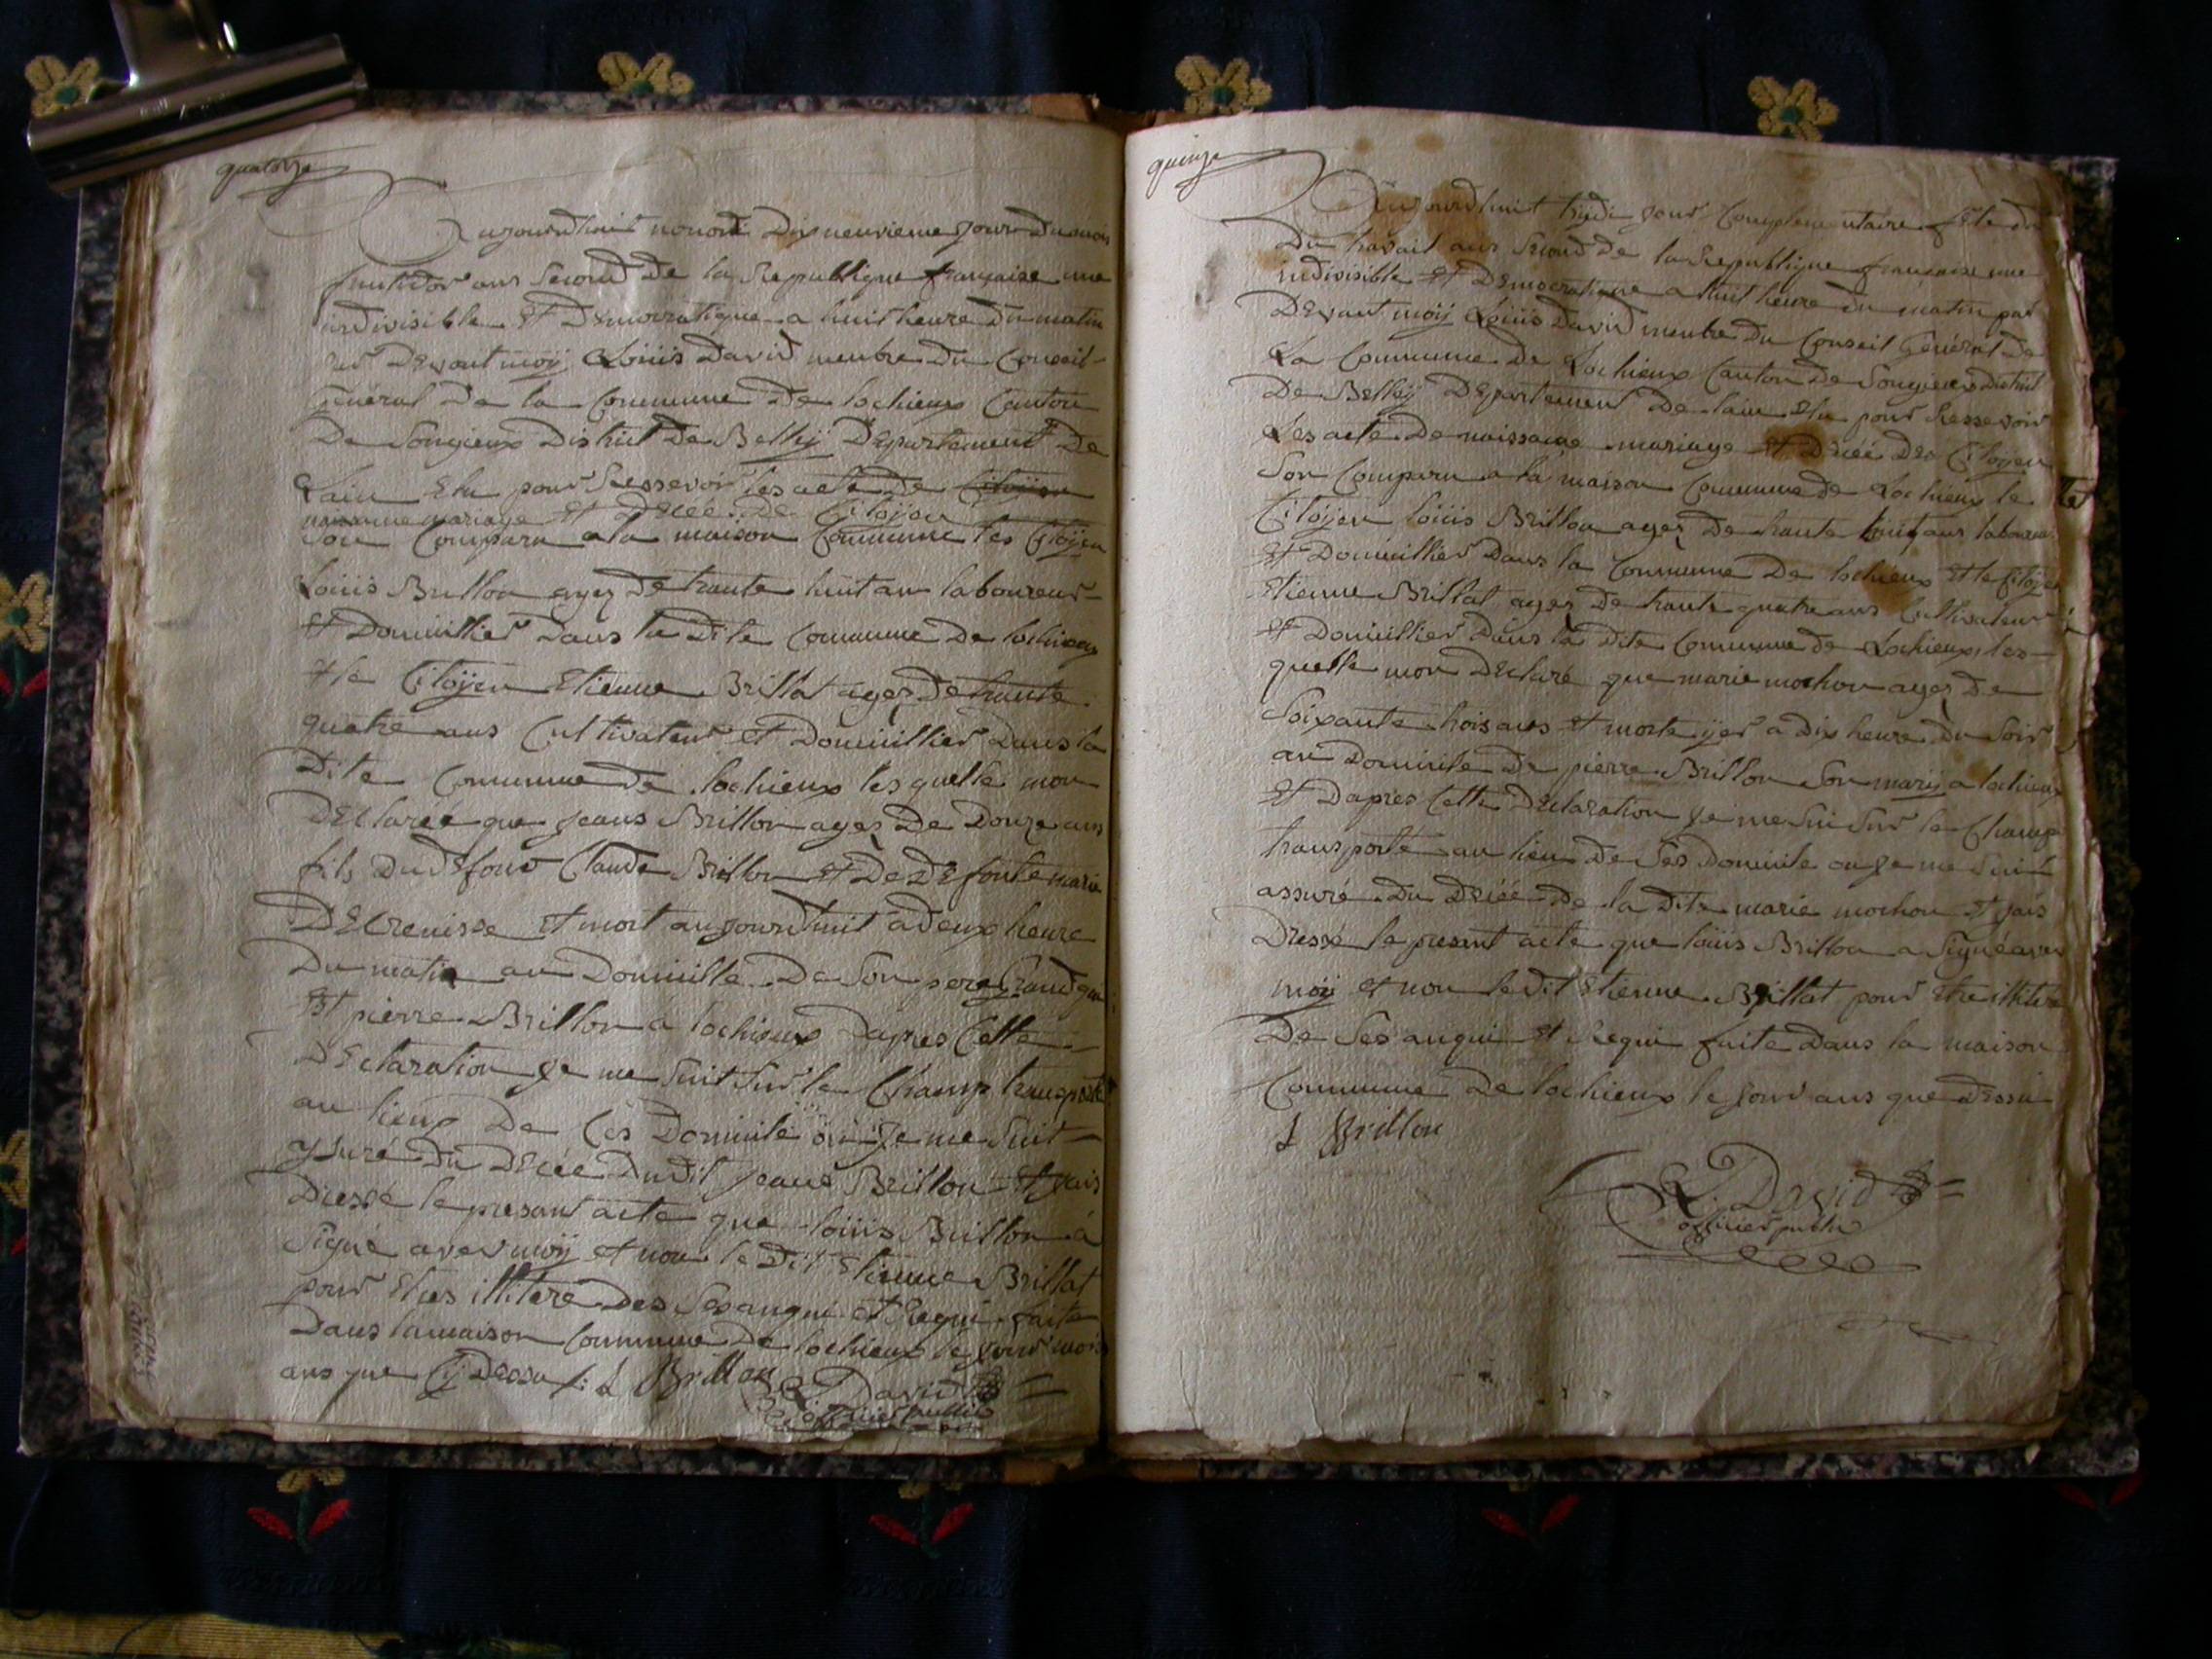 quatorze
Aujourdhuit nonodi Dix neuvieme jour du mois
fruttidor ans second De la Republique francaise une
indivisible Et Democratique a huit heure Du matin
par Devant moÿ Loüis David menbre Du Conseil
General De la Commune De lochieux Canton
De Songieux District De Belleÿ Departement De
Lain Elu pour Ressevoir les acte De Citoÿen
naissance mariage Et Décée De Citoÿen
Son Comparu a la maison Commune les Citoÿen
Loüis Brillon agez De trante huit an laboureur
Et Domicillier Dans la Dite Commune De lochieux
et le Citoÿen Etienne Brillat agez De trante
quatre ans Cultivateur et Domicillier Dans la
Dite Commune De lochieux lesquelle mon
Declarée que jeans Brillon agez De Douze ans
fils Du Defont Claude Brillon Et De Defonte marie
Decrenisse Et mort aujourdhuit a deux heure
Du matin au Domicille De Son pere Grand qui
Et pierre Brillon a lochieux Dapres Cette
Declaration je me suit sur le Champ transporté
au lieux De Ces Domicile ou je me suit
assuré Du Décée Dudit jeans Brillon Et jais
Dressé le presant acte que loüis Brillon a
signé avec moÿ et non le Dit Etienne Brillat
pour Etres illitere Des Ses anqui et Requi faite
Dans la maison Commune De lochieux le jour mois
ans que Cÿ Dessu /: L Brillon
L. David
officier public
quinze
Aujourdhuit trÿdi jour Complementaire fete du
Du travail ans second De la Republique francaise une
indivisible Et Democratique a huit heure du matin par
Devant moÿ Loüis David menbre Du Conseil Général De
La Commune De Lochieux Canton De Songieux District
De Belleÿ Departement De lain Elu pour Ressevoir
Les acte De naissance mariage Et Décée Des Citoÿen
Son Comparu a la maison Commune De Lochieux le
Citoÿen loüis Brillon agez De trante huit ans laboureur
Et Domicillier Dans la Commune De lochieux Et le Citoÿen
Etienne Brillat agez De trante quatre ans Cultivateur
Et Domicillier Dans la Dite Commune De Lochieux les
quelle mon Declaré que marie mochon agez De
Soixante trois ans Et morte ÿer a Dix heure Du Soir
au Domicile De pierre Brillon Son marÿ a lochieux
Et Dapres Cette Declaration je me Sui Sur le Champ
transporté au lieu De Ses Domicile ou je me Suit
assuré Du Décée De la Dite marie mochon Et jais
Dressé le present acte que loüis Brillon a Signé avec
moÿ et non le dit Etienne Brillat pour Etre illitere
De Ses anqui Et Requi faite Dans la maison
Commune De lochieux le jour ans que Dessu
L Brillon
L. David
officier public